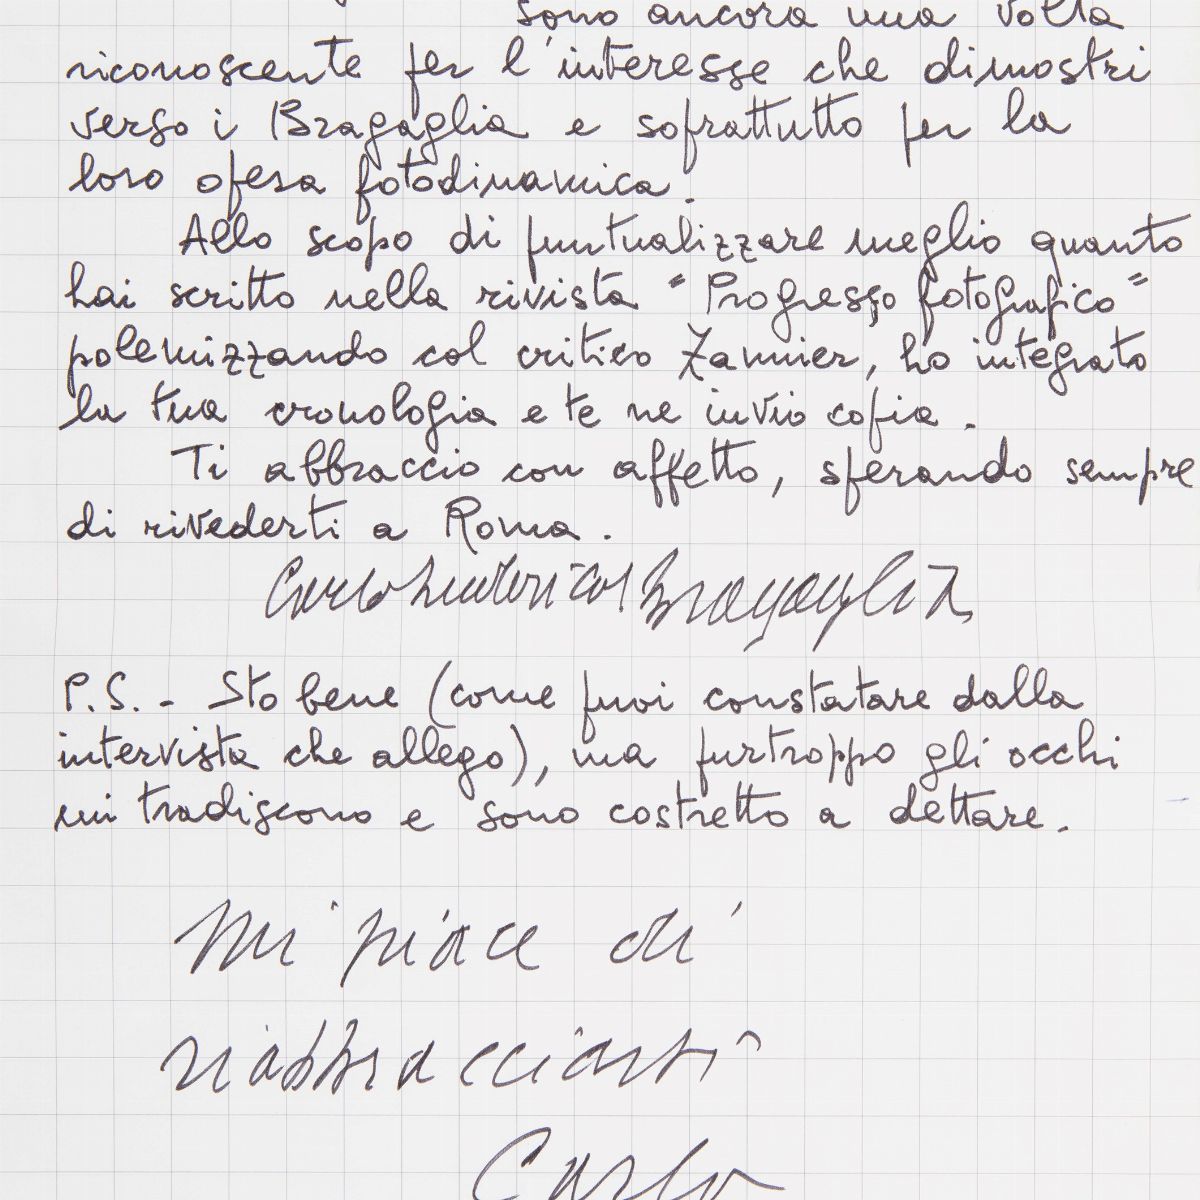 sono ancora una volta
riconoscente per l'interesse che dimostri
verso i Bragaglia e soprattutto per la
loro opera fotodinamica.
Allo scopo di puntualizzare meglio quanto
hai scritto nella rivista "Progresso fotografico"
polemizzando col critico Zannier, ho integrato
la tua cronologia e te ne invio copia.
Ti abbraccio con affetto, sperando sempre
di rivederti a Roma.
Carlo Ludovico Bragaglia
P.S. - Sto bene (come puoi constatare dalla
intervista che allego), ma purtroppo gli occhi
mi tradiscono e sono costretto a dettare.
Mi piace di
riabbracciarti
Carlo